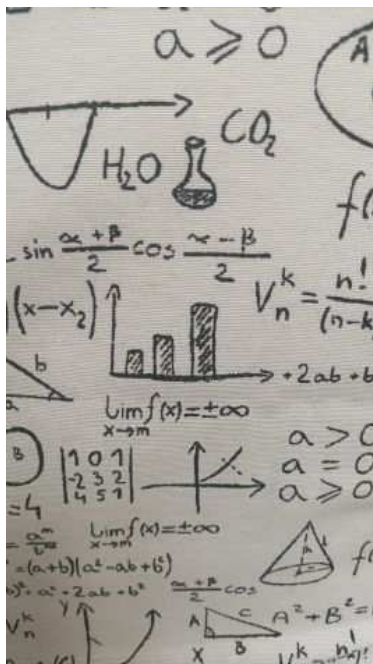 a ⩾ 0
A
H₂O
CO₂
f(
sin α + β/2 cos α - β/2
(x-x₂)
Vₙᵏ = n!/(n-k
b
a
+ 2ab + b
Lim f(x) = ±∞
x→m
B
|1 0 1|
|-2 3 2|
|4 5 1|
a > 0
a = 0
a ⩾ 0
= 4
= aᵐ
Lim f(x) = ±∞
x→m
= (a+b)(a² - ab + b²)
)² = a² + 2ab + b²
α + β/2 cos
f(
Y
Vₙᵏ
A
C
B
X
A² + B² =
Vₙᵏ = n!